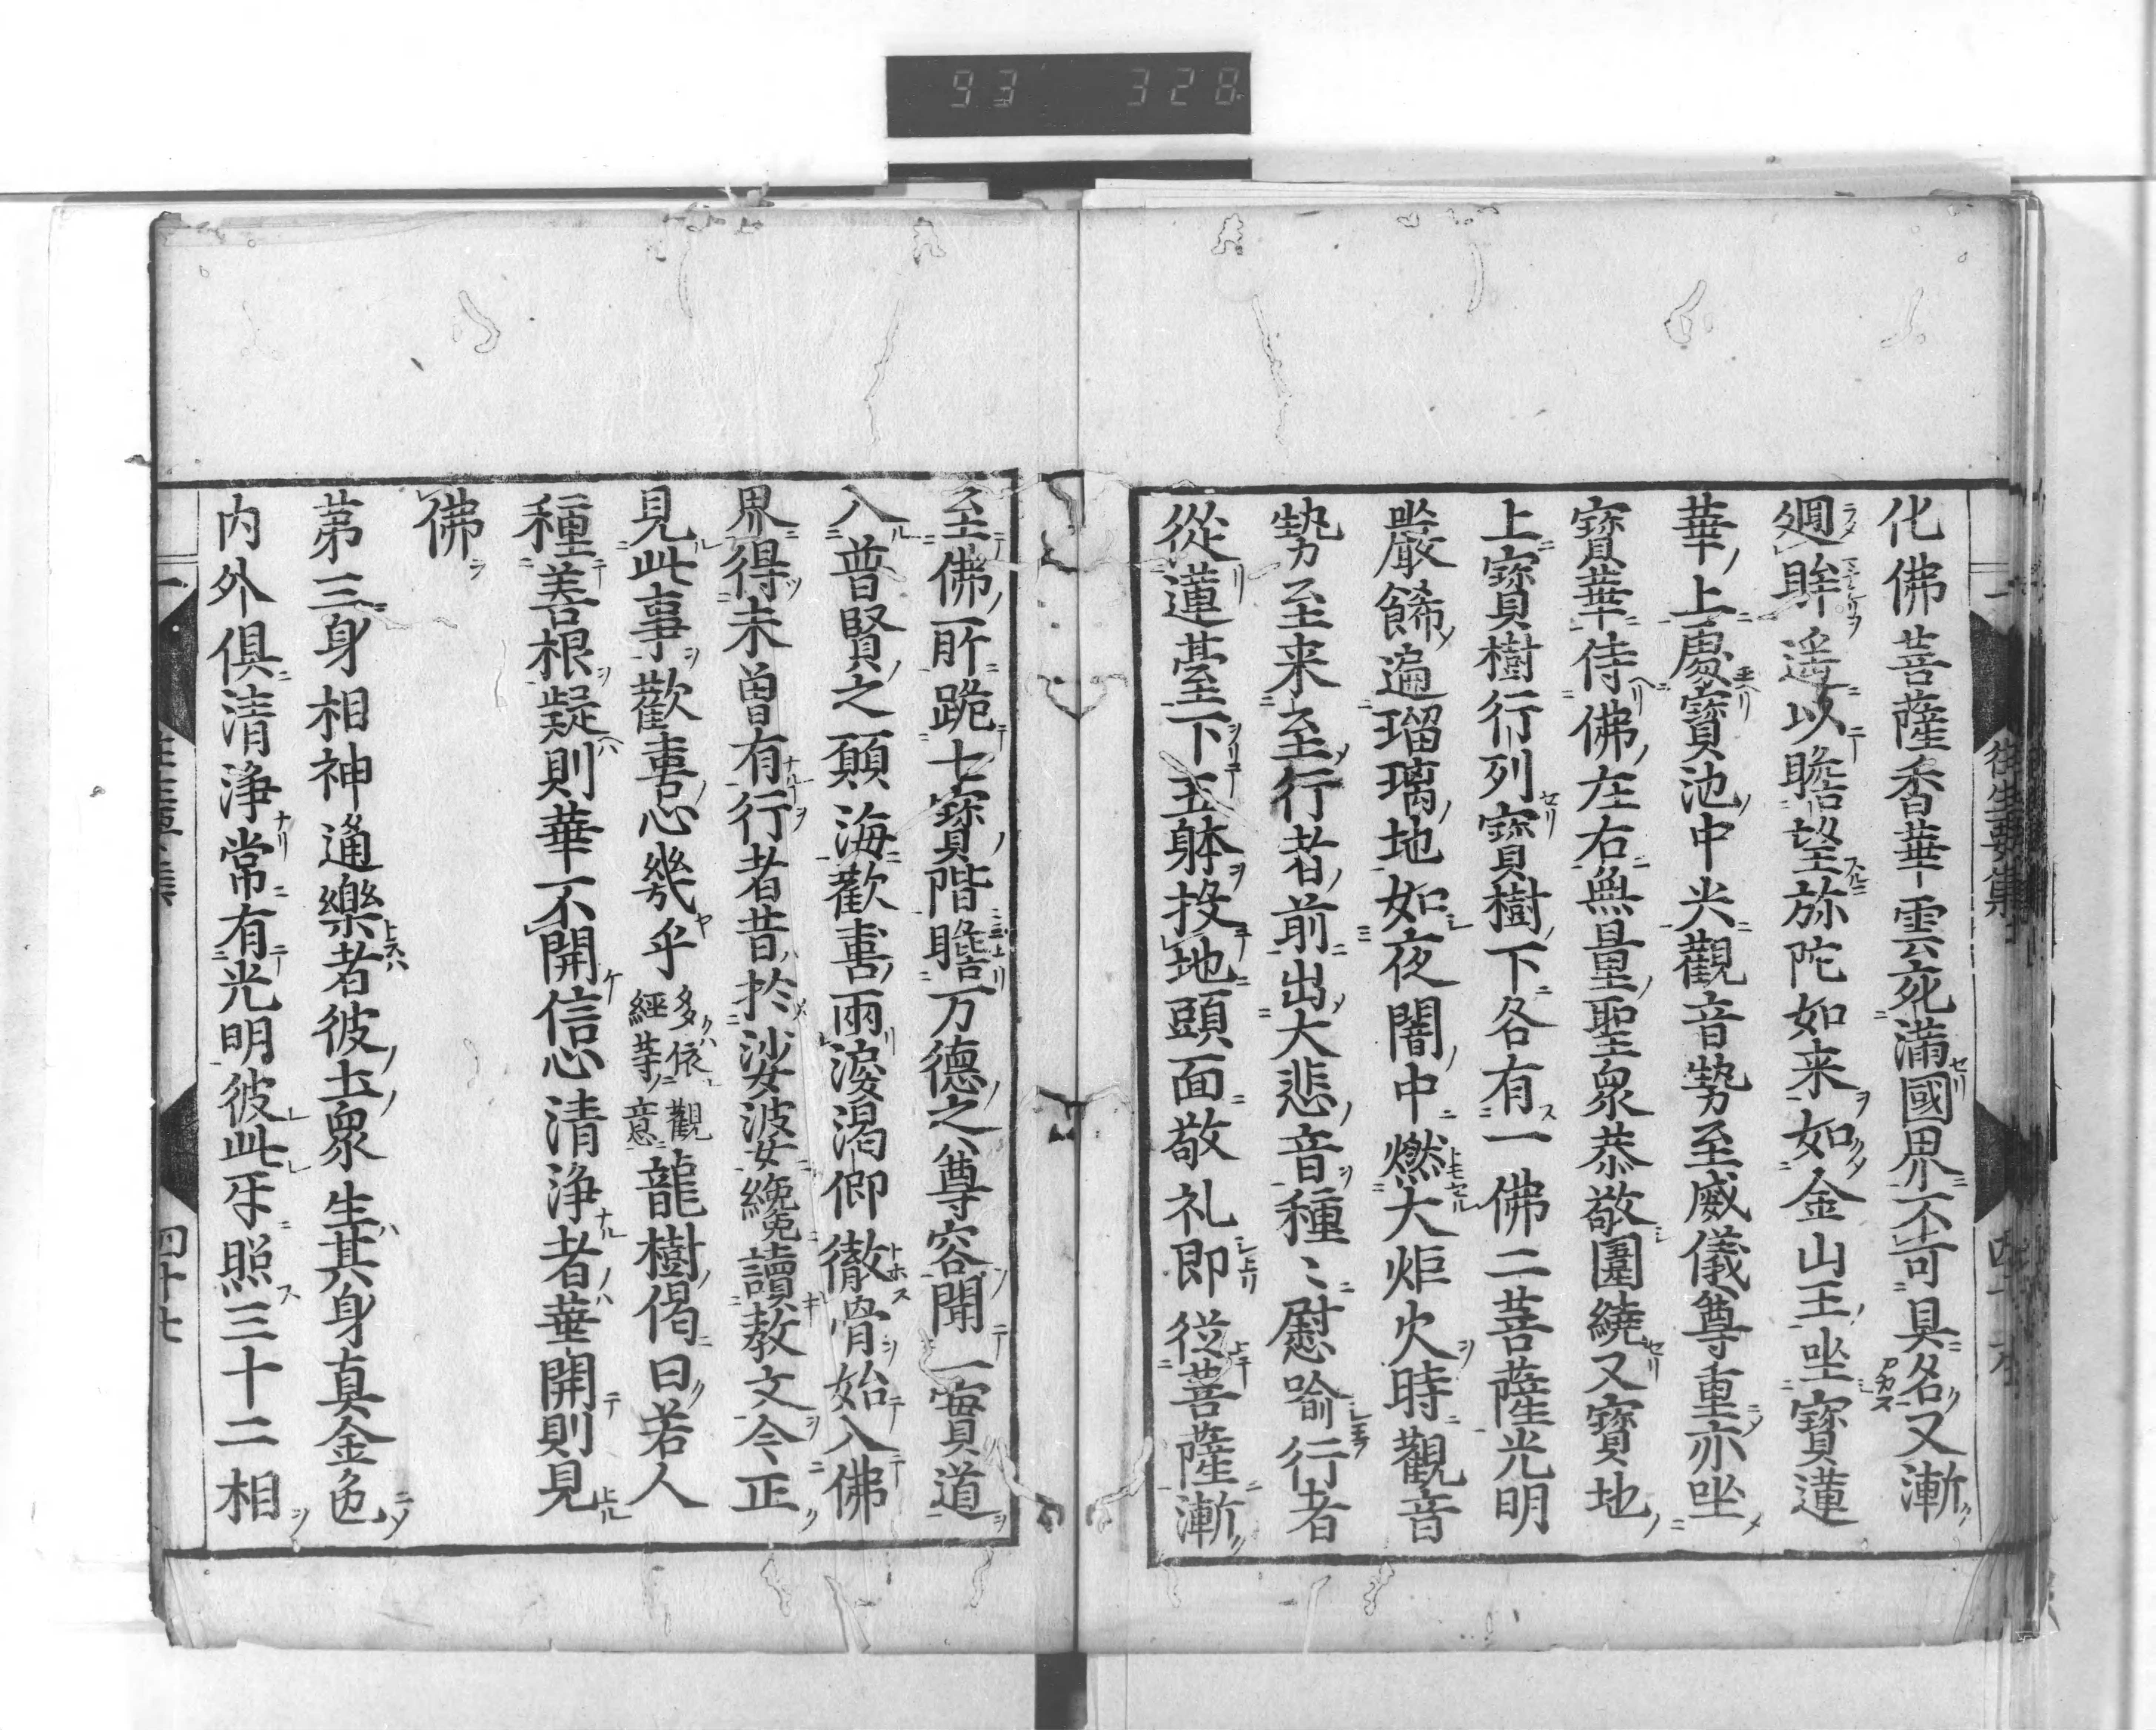 93 328
化佛菩薩香華雲死滿國界不可具名又漸
廻眸遥以瞻望弥陀如来如金山王坐寳蓮
華上處寳池中央觀音勢至威儀尊重亦坐
寳華侍佛左右無量聖衆恭敬圍繞又寳地
上寳樹行列寳樹下各有一佛二菩薩光明
嚴餝遍瑠璃地如夜闇中燃大炬火時觀音
勢至来至行者前出大悲音種〻慰喩行者
從蓮臺下五躰投地頭面敬礼即從菩薩漸
往生要集
至佛所跪七寳階瞻万德之尊容聞一實道
入普賢之願海歡喜雨淚渴仰徹骨始入佛
界得未曽有行者昔於娑婆纔讀教文今正
見此事歡喜心幾乎
多依觀
經等意
龍樹偈曰若人
種善根疑則華不開信心清浄者華開則見
佛
第三身相神通樂者彼土衆生其身真金色
内外俱清浄常有光明彼此牙照三十二相
四十七